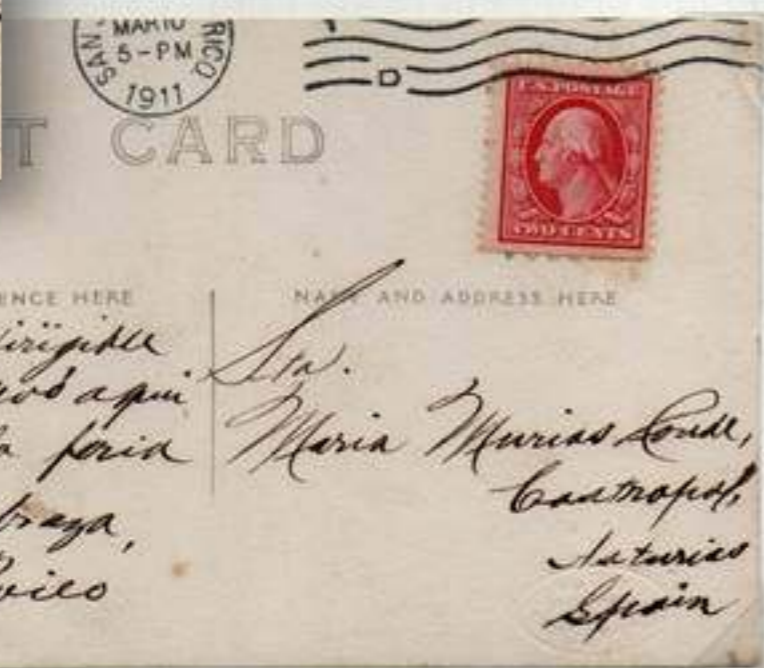 SAN RICO
MAR 10
5-PM
1911
D
T CARD
U.S. POSTAGE
TWO CENTS
ENCE HERE
NAME AND ADDRESS HERE
irigible
aqui
feria
Sta.
Maria Murias Conde,
Castropol,
Asturias
Spain